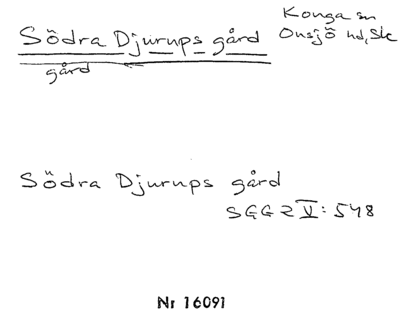 Södra Djurups gård
Konga sn
Onsjö hd, Sk
gård
Södra Djurups gård
SGG 2 V: 548
Nr 16091